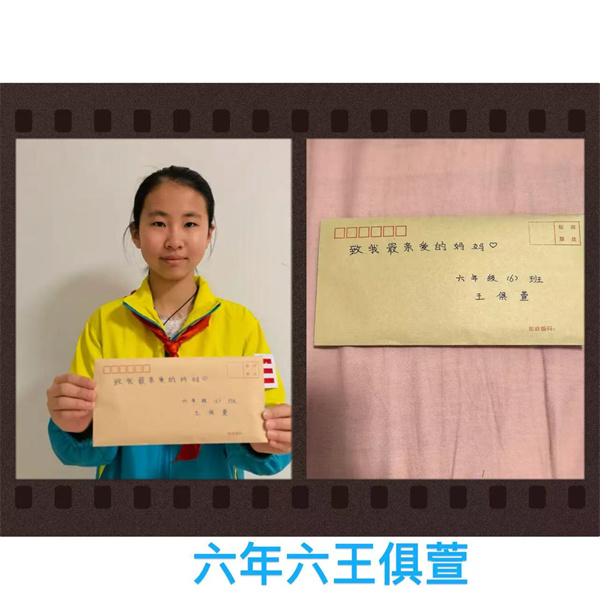 致我最亲爱的妈妈♡
六年级(6)班
王俱萱
致我最亲爱的妈妈♡
六年级(6)班
王俱萱
贴邮
票处
邮政编码:
六年六王俱萱